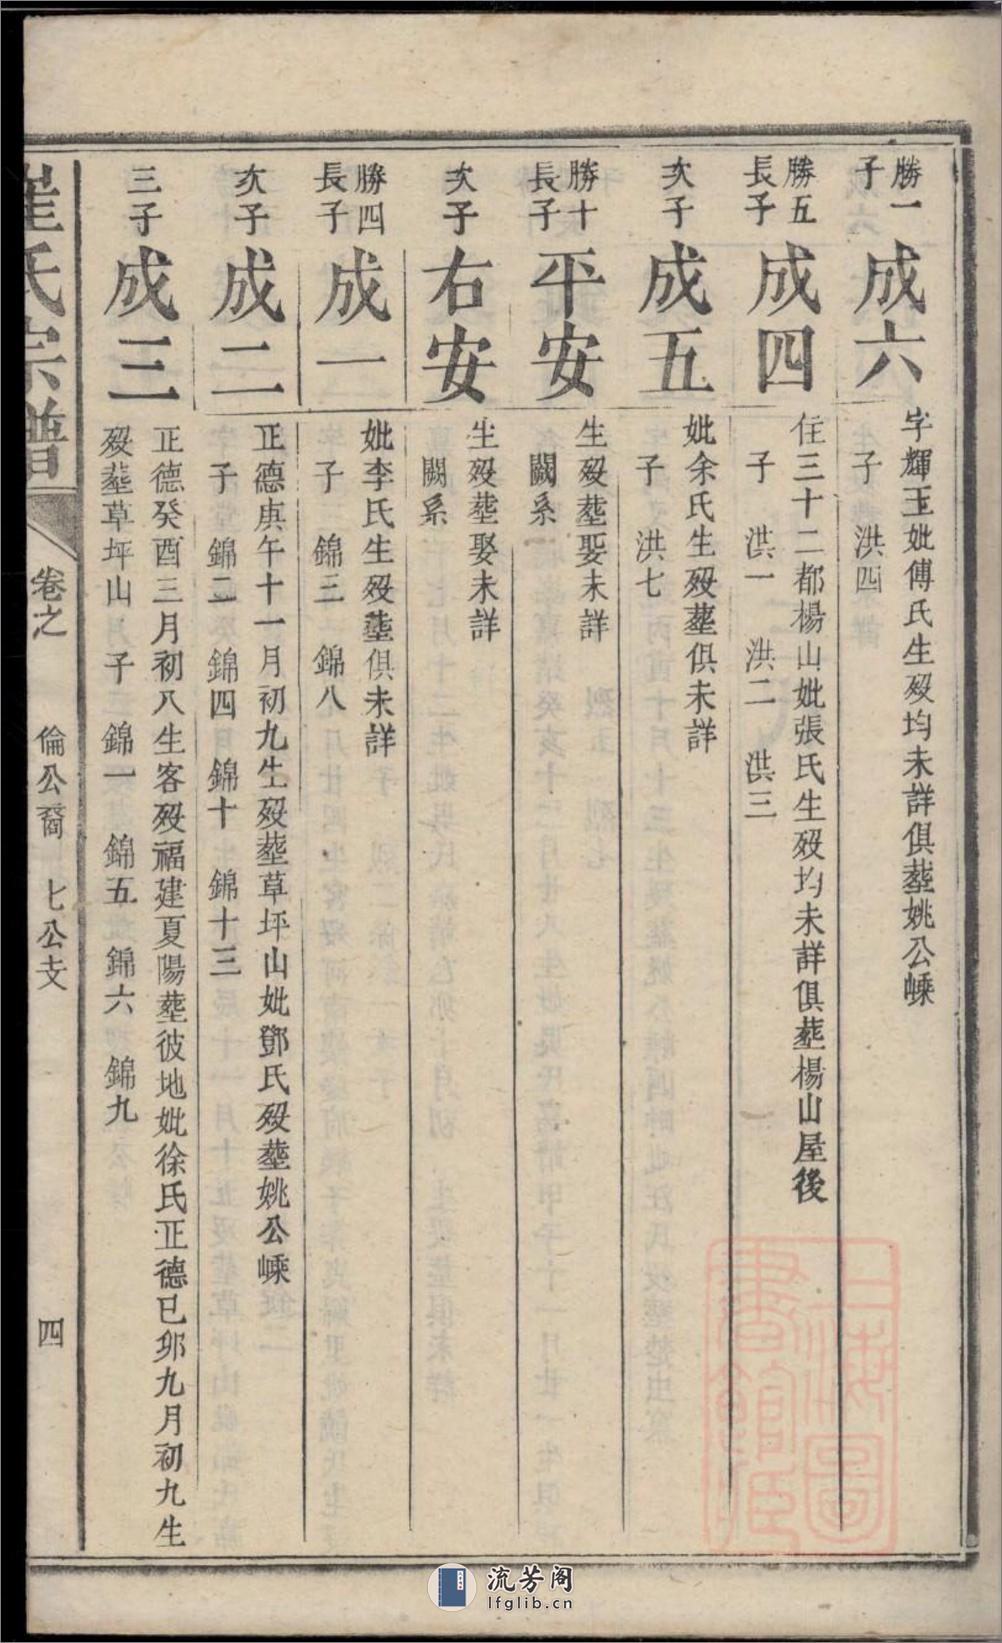 勝一
子
成六
字輝玉妣傅氏生歿均未詳俱塟姚公嵊
子 洪四
勝五
長子
成四
住三十二都楊山妣張氏生歿均未詳俱塟楊山屋後
子 洪一 洪二 洪三
次子
成五
妣余氏生歿塟俱未詳
子 洪七
勝十
長子
平安
生歿塟娶未詳
闕系
次子
右安
生歿塟娶未詳
闕系
勝四
長子
成一
妣李氏生歿塟俱未詳
子 錦三 錦八
次子
成二
正德庚午十一月初九生歿塟草坪山妣鄧氏歿塟姚公嵊
子 錦二 錦四 錦十 錦十三
三子
成三
正德癸酉三月初八生客歿福建夏陽塟彼地妣徐氏正德已卯九月初九生
歿塟草坪山 子 錦一 錦五 錦六 錦九
崔氏宗譜
卷之 倫公裔 七公支 四
上海圖
書館藏
流芳阁
lfglib.cn